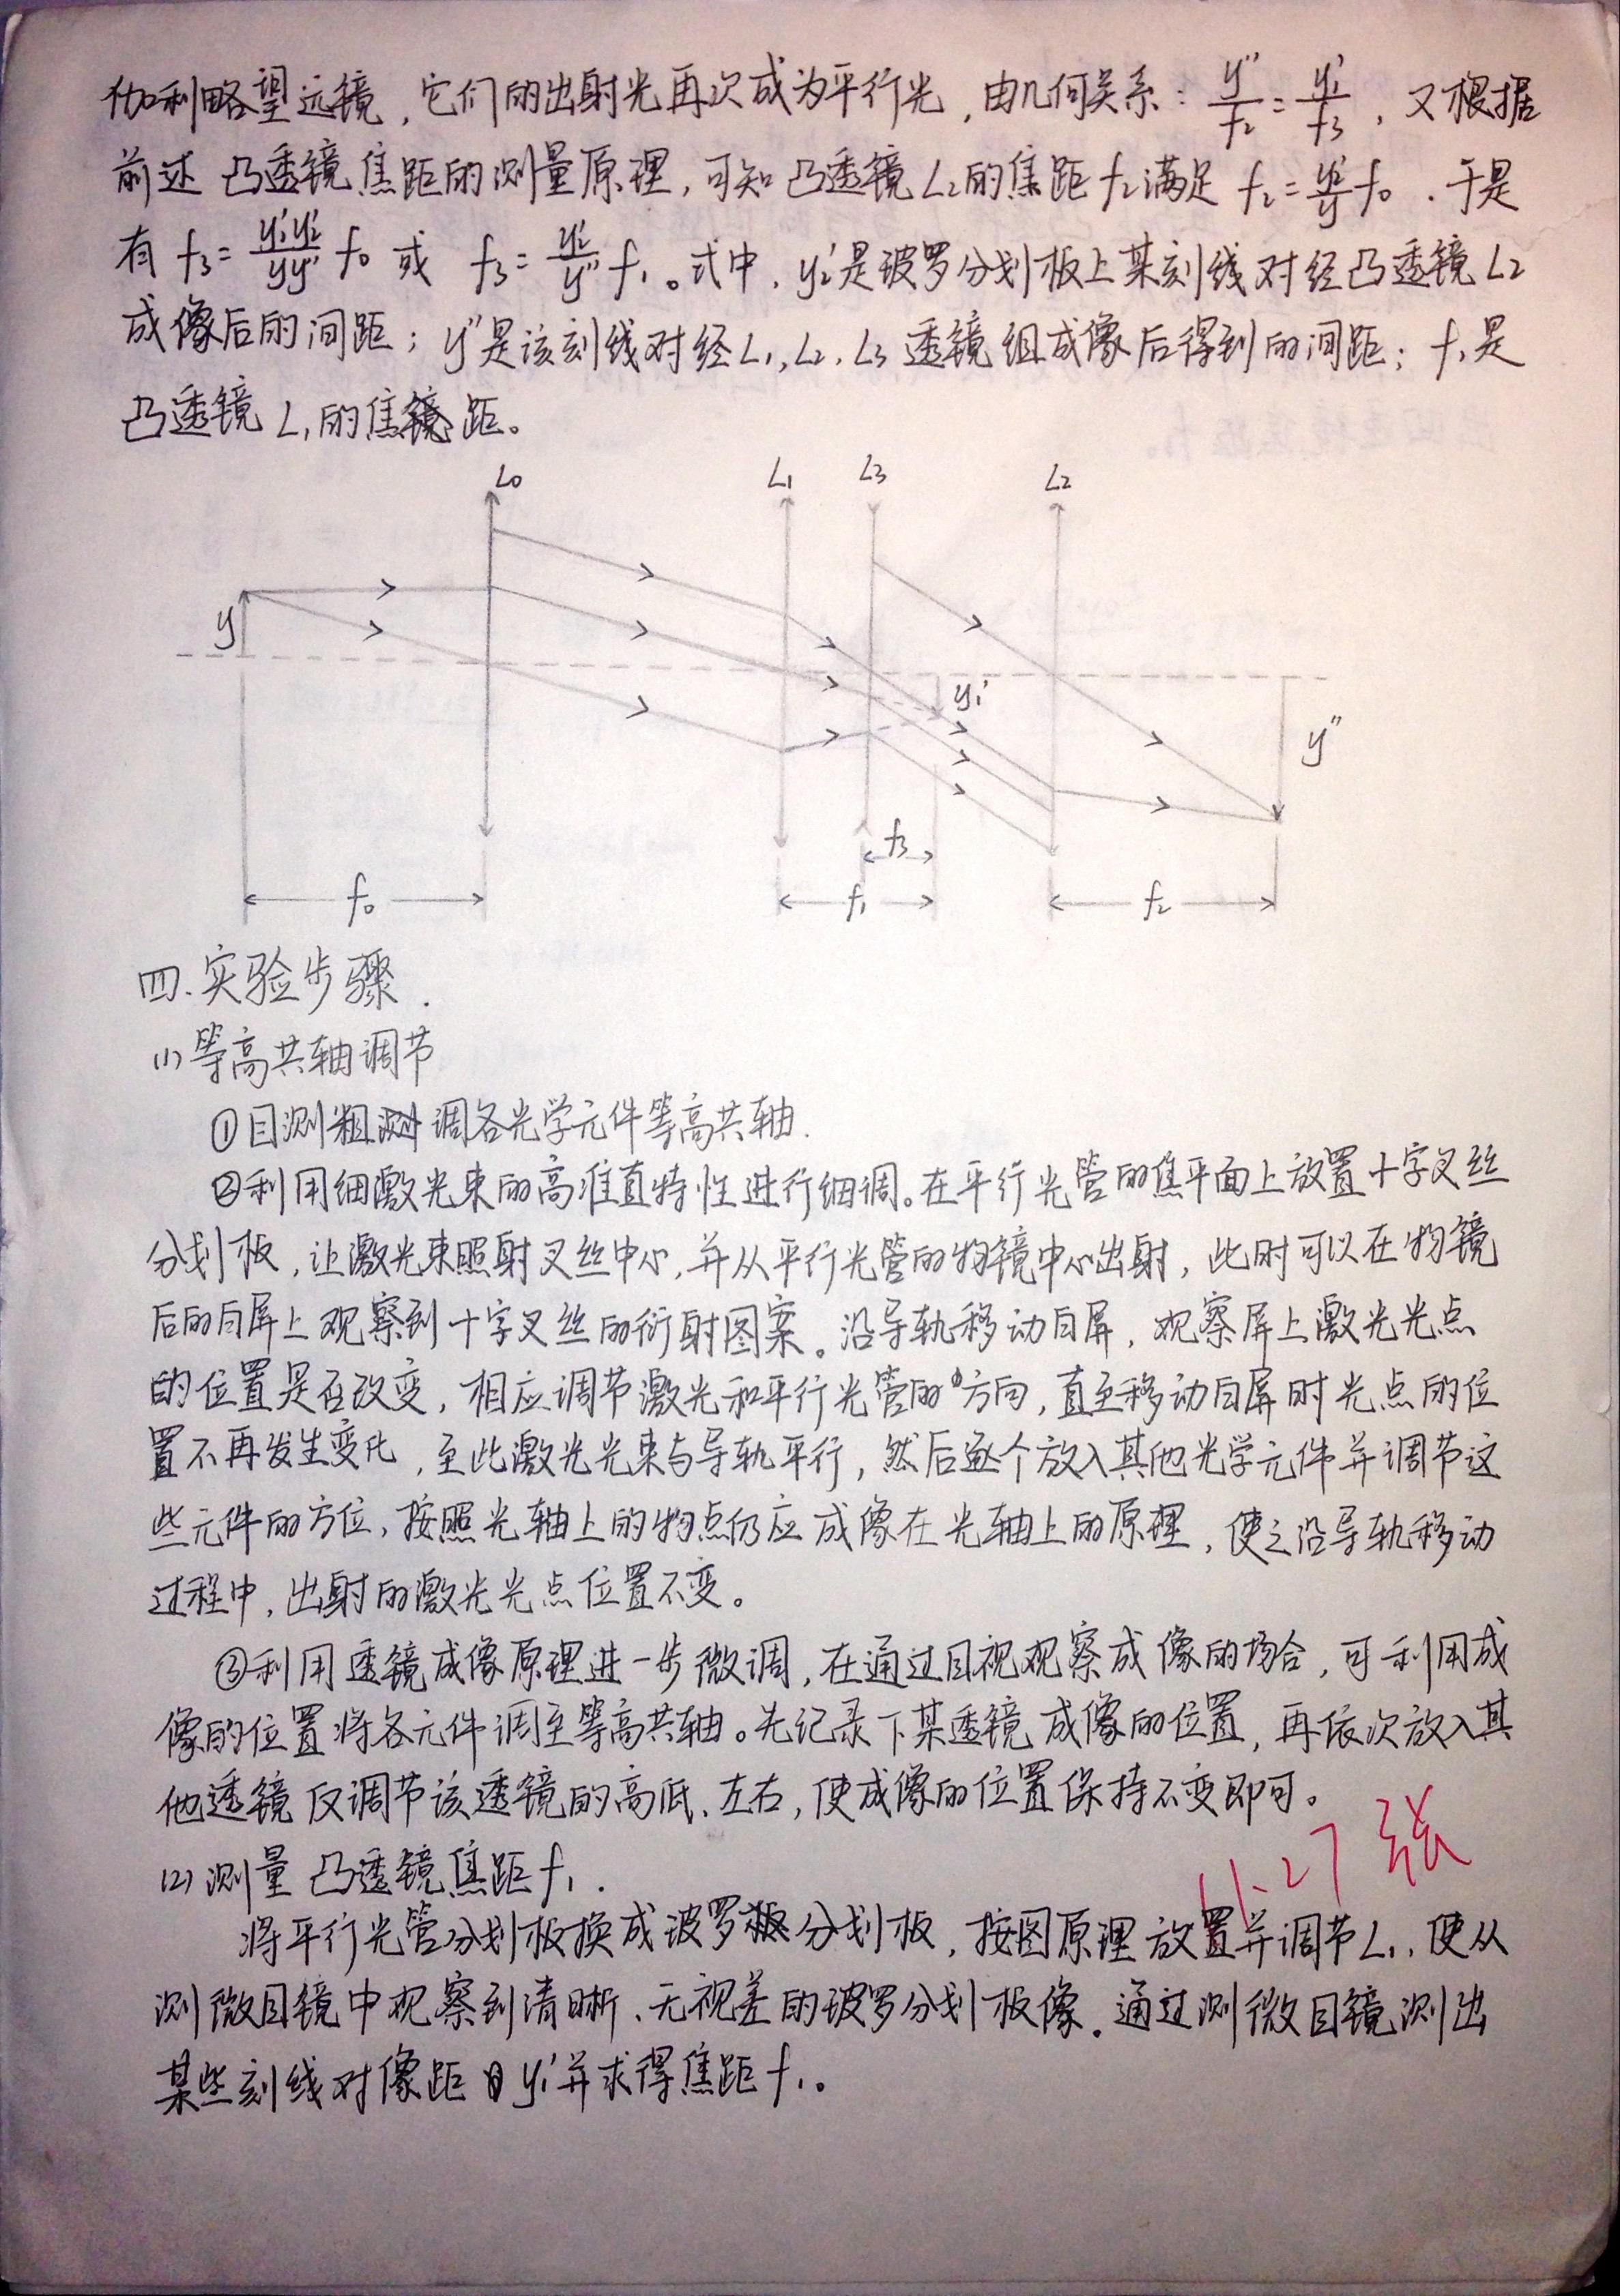 伽利略望远镜，它们的出射光再次成为平行光，由几何关系：y''/f₂=y₁'/f₃，又根据
前述凸透镜焦距的测量原理，可知凸透镜L₂的焦距f₂满足 f₂=y₂'/y f₀．于是
有 f₃=y₁'y₂'/yy'' f₀ 或 f₃=y₂'/y'' f₁。式中，y₂'是玻罗分划板上某刻线对经凸透镜L₂
成像后的间距；y''是该刻线对经L₁,L₂,L₃透镜组成像后得到的间距；f₁是
凸透镜L₁的焦距。
L₀ L₁ L₃ L₂
y
y₁'
y''
f₃
f₀ f₁ f₂
四.实验步骤.
(1)等高共轴调节
①目测粗调各光学元件等高共轴.
②利用细激光束的高准直特性进行细调。在平行光管的焦平面上放置十字叉丝
分划板，让激光束照射叉丝中心,并从平行光管的物镜中心出射，此时可以在物镜
后的白屏上观察到十字叉丝的衍射图案。沿导轨移动白屏，观察屏上激光光点
的位置是否改变，相应调节激光和平行光管的方向，直至移动白屏时光点的位
置不再发生变化，至此激光光束与导轨平行，然后逐个放入其他光学元件并调节这
些元件的方位,按照光轴上的物点仍应成像在光轴上的原理，使之沿导轨移动
过程中，出射的激光光点位置不变。
③利用透镜成像原理进一步微调,在通过目视观察成像的场合，可利用成
像的位置将各元件调至等高共轴。先记录下某透镜成像的位置，再依次放入其
他透镜仅调节该透镜的高低、左右，使成像的位置保持不变即可。
(2)测量凸透镜焦距f₁.
11.27 张
将平行光管分划板换成玻罗分划板，按图原理放置并调节L₁,使从
测微目镜中观察到清晰、无视差的玻罗分划板像．通过测微目镜测出
某些刻线对像距y₁'并求得焦距f₁。